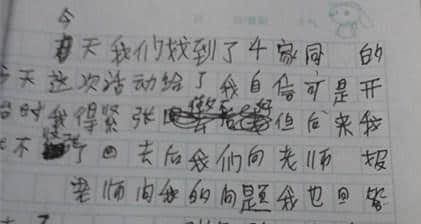 今
天我们找到了4家同 的
今天这次活动给了我自信可是开
台时我得紧张 但后来我
不 了回去后我们向老师 报
老师问我的问题我也回答